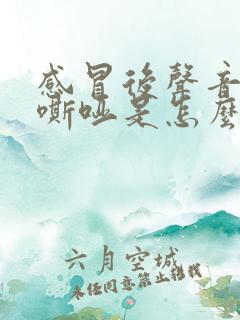 感冒後聲音
嘶啞是怎麼
六月空城
未经同意禁止转载